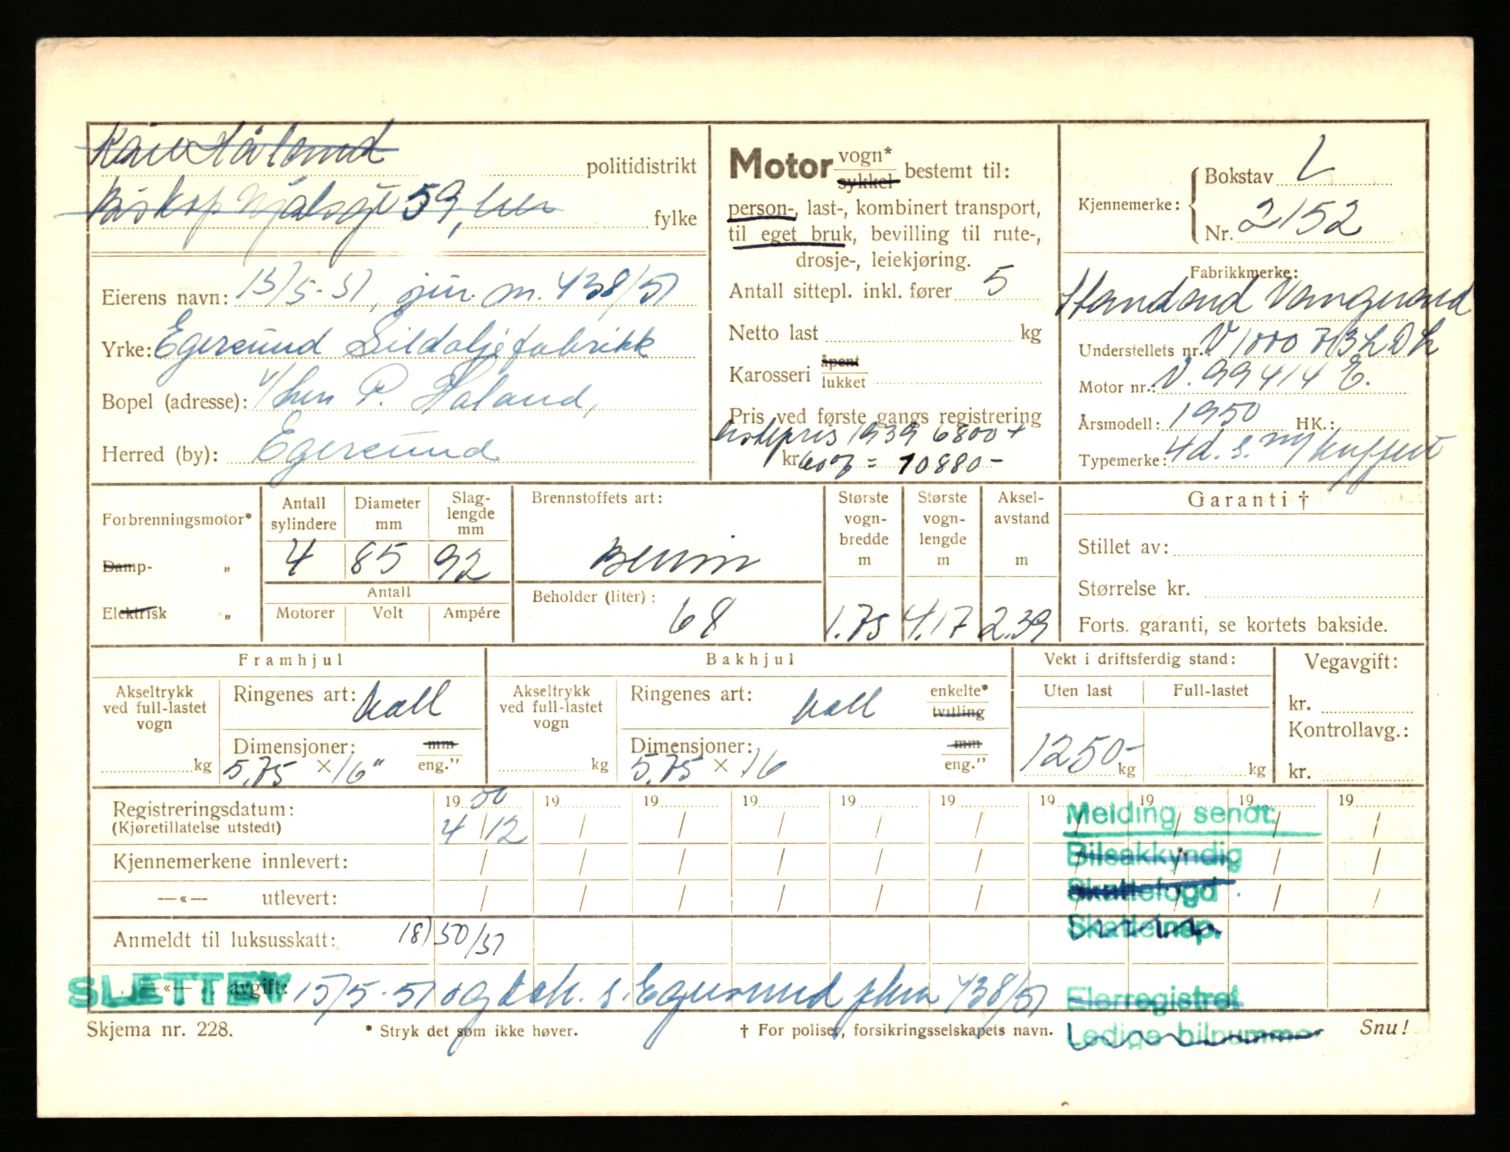 Kåre Håland
politidistrikt
Biskop Njålsgt 59,
fylke
13/5-51, jnr. 438/51
Eierens navn:
Yrke: Egersund Sildoljefabrikk
Bopel (adresse): v/ P. Håland,
Herred (by): Egersund
Motor vogn* sykkel bestemt til:
person-, last-, kombinert transport,
til eget bruk, bevilling til rute-,
drosje-, leiekjøring.
Antall sittepl. inkl. fører 5
Netto last kg
Karosseri åpent lukket
Pris ved første gangs registrering
listepris 1939 6800 +
kr. 60% = 10880-
Kjennemerke: Bokstav L
Nr. 2152
Fabrikkmerke:
Standard Vanguard
Understellets nr.:
Motor nr.: V. 99414 E.
Årsmodell: 1950 HK.:
Typemerke: 4d. s. m/kuffert
Forbrenningsmotor*
Damp- "
Elektrisk "
Antall sylindere 4
Diameter mm 85
Slaglengde mm 92
Antall
Motorer Volt Ampére
Brennstoffets art: Bensin
Beholder (liter): 68
Største vognbredde m 1.75
Største vognlengde m 4.17
Akselavstand m 2.39
Garanti †
Stillet av:
Størrelse kr.
Forts. garanti, se kortets bakside.
Framhjul
Akseltrykk ved full-lastet vogn kg
Ringenes art: Luft
Dimensjoner: mm
5.75 × 16" eng."
Bakhjul
Akseltrykk ved full-lastet vogn kg
Ringenes art: Luft enkelte* tvilling
Dimensjoner: mm
5.75 × 16 eng."
Vekt i driftsferdig stand:
Uten last Full-lastet
1250- kg kg
Vegavgift:
kr.
Kontrollavg.:
kr.
Registreringsdatum: 19 50 19 19 19 19 19 19 19 19 19
(Kjøretillatelse utstedt) 4/12
Kjennemerkene innlevert:
—«— utlevert:
Anmeldt til luksusskatt: 18/50/51
—«— avgift: 15/5-51 og 438/51
SLETTET
Melding sendt:
Bilsakkyndig
Skattefogd
Skatteinsp.
Eierregistret
Ledige bilnummer
Skjema nr. 228.
* Stryk det som ikke høver.
† For poliser, forsikringsselskapets navn.
Snu!